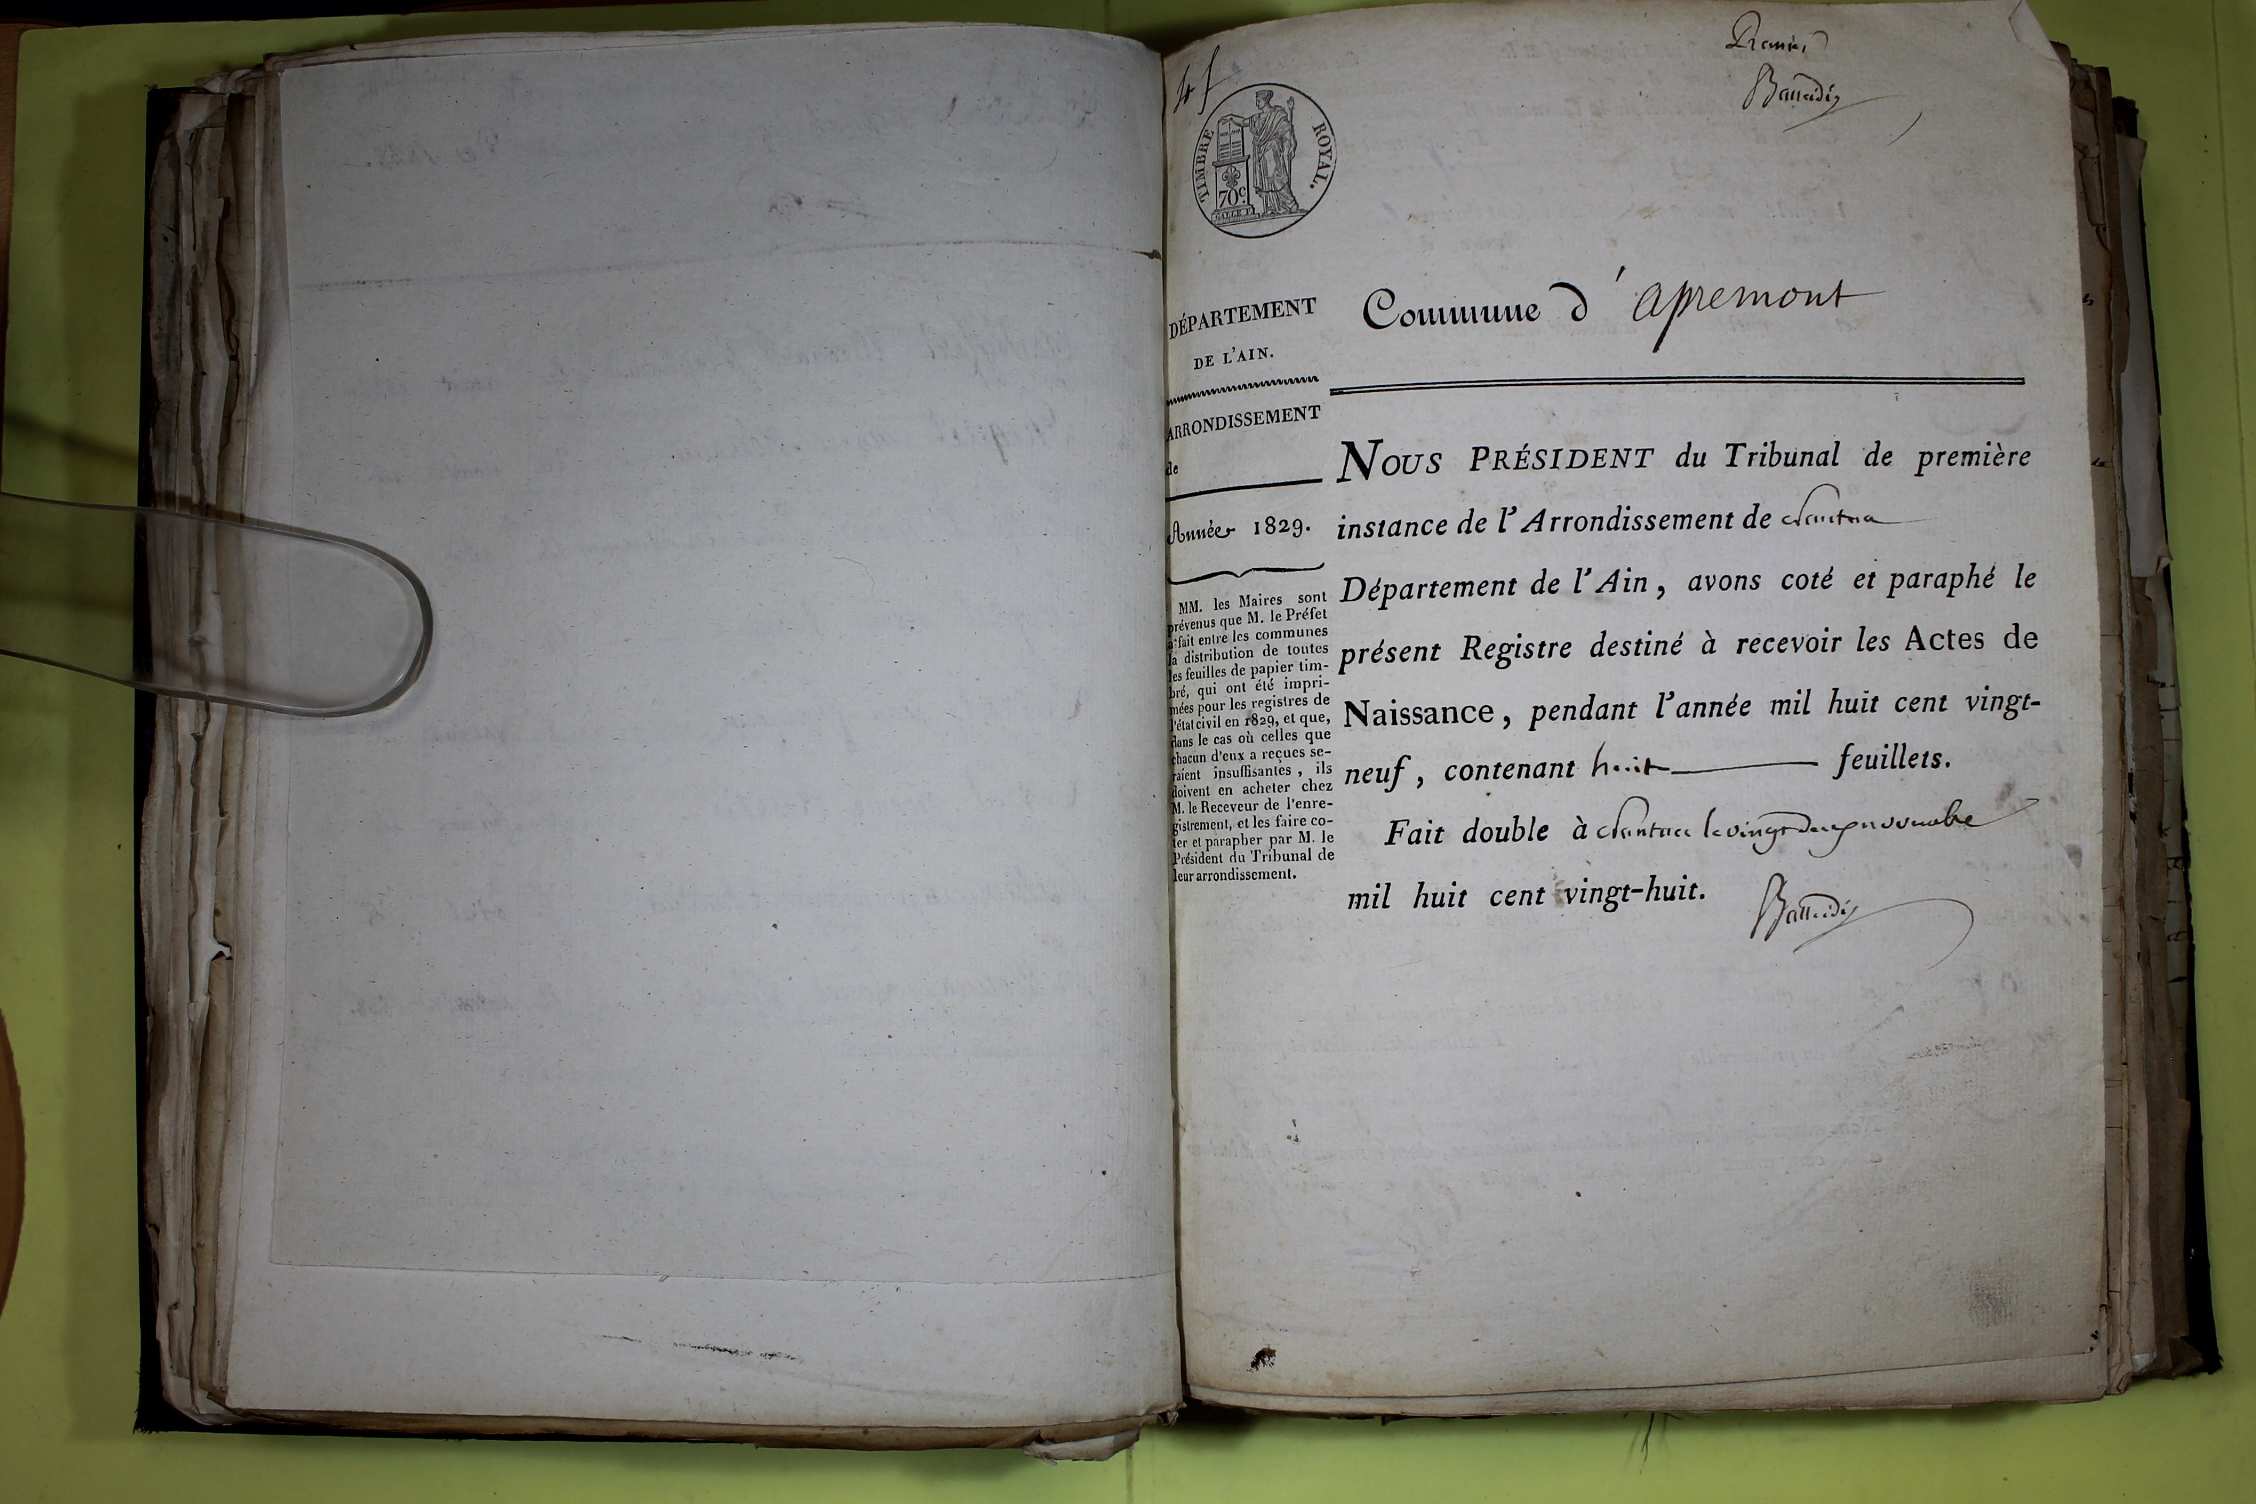 4 f
Premier
TIMBRE ROYAL.
70c.
GALLE F.
DÉPARTEMENT
DE L'AIN.
ARRONDISSEMENT
de
Année 1829.
MM. les Maires sont
prévenus que M. le Préfet
a fait entre les communes
la distribution de toutes
les feuilles de papier tim-
bré, qui ont été impri-
mées pour les registres de
l'état civil en 1829, et que,
dans le cas où celles que
chacun d'eux a reçues se-
raient insuffisantes, ils
doivent en acheter chez
M. le Receveur de l'enre-
gistrement, et les faire co-
ter et parapher par M. le
Président du Tribunal de
leur arrondissement.
Commune d' apremont
NOUS PRÉSIDENT du Tribunal de première
instance de l'Arrondissement de Nantua
Département de l'Ain, avons coté et paraphé le
présent Registre destiné à recevoir les Actes de
Naissance, pendant l'année mil huit cent vingt-
neuf, contenant huit feuillets.
Fait double à Nantua le vingt deux novembre
mil huit cent vingt-huit.